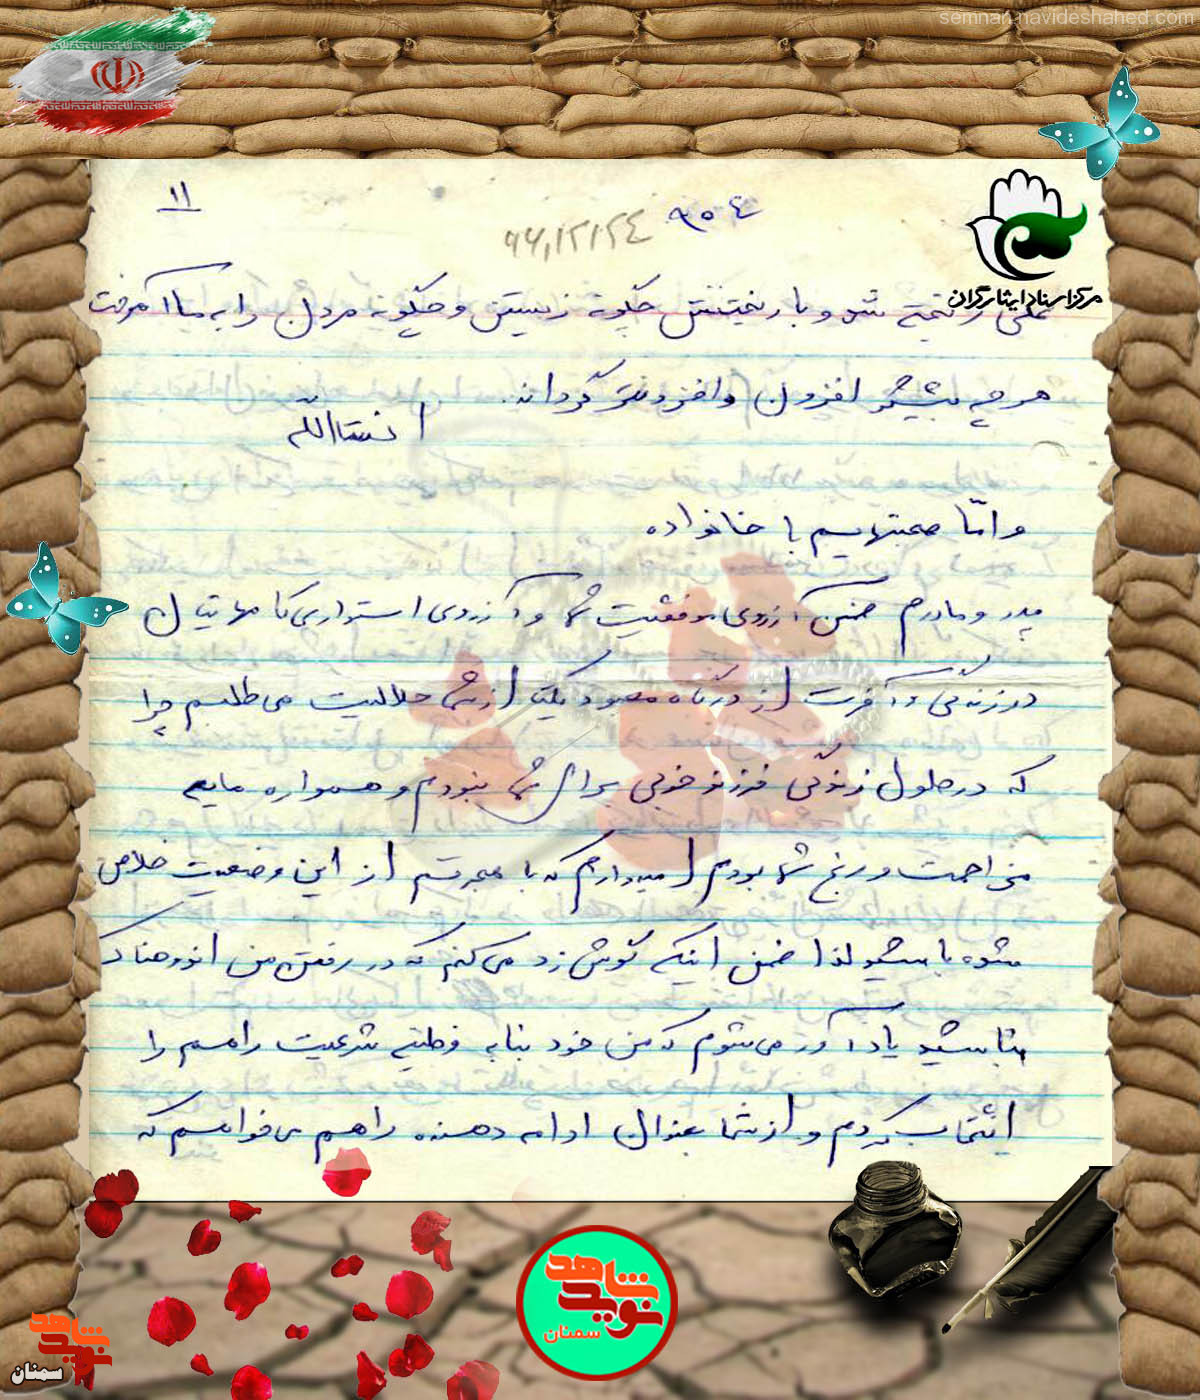 semnan.navideshahed.com
۱۱
۹۵٤
۶۶,۱۲,۲٤
مرکز اسناد ایثارگران
ریخته شد و با ریختنش چگونه زیستن و چگونه مردن را به ما آموخت
هر چه بیشتر افزون و افزونتر گرداند.
انشاالله
و امّا صحبتهایم با خانواده
پدر و مادرم ضمن آرزوی موفقیت شما و آرزوی استواری گامهایتان
در زندگی و آخرت از درگاه معبود یکتا از شما حلالیت می‌طلبم چرا
که در طول زندگی فرزند خوبی برای شما نبودم و همواره مایه
مزاحمت و رنج شما بودم امیدوارم که با هجرتم از این وضعیت خلاص
شده باشید لذا ضمن اینکه گوش زد می‌کنم که در رفتن من اندوهناک
نباشید یادآور می‌شوم که من خود بنا به وظیفه شرعیت راهم را
انتخاب کردم و از شما بعنوان ادامه دهنده راهم می‌خواهم که
نوید شاهد
سمنان
نوید شاهد
سمنان